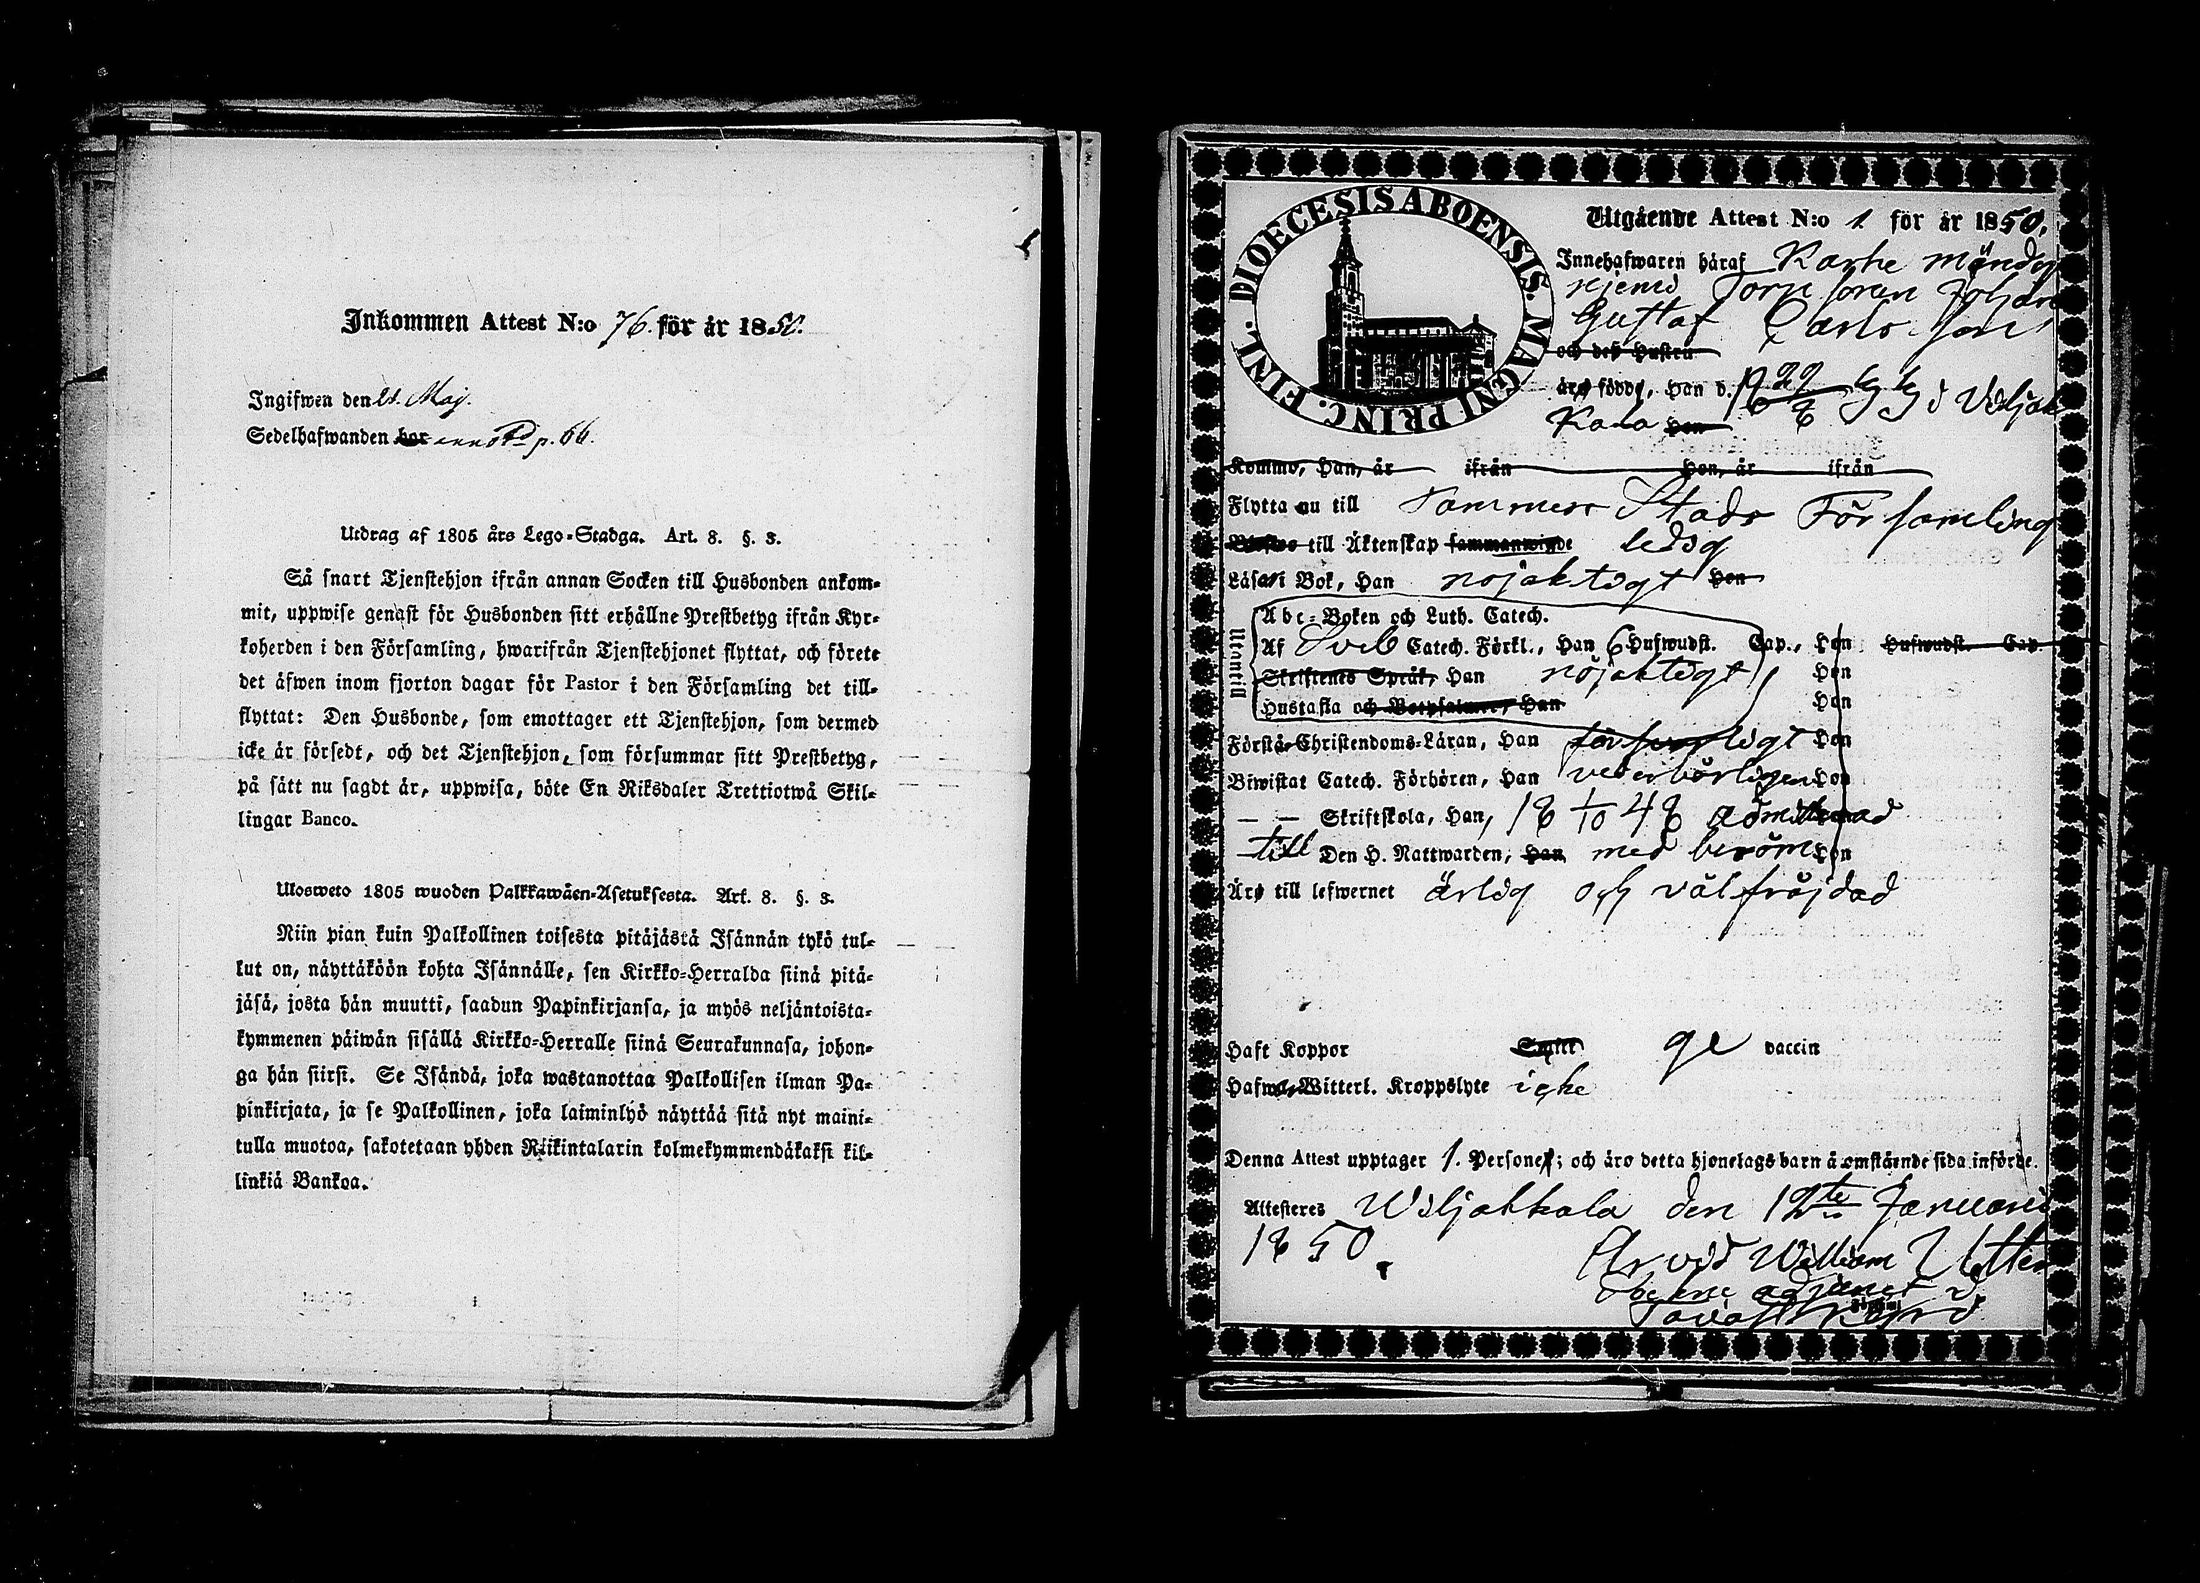 Inkommen Attest N:o 76. för år 1850.
Ingifwen den 21. Maj.
Sedelhafwanden har annot p. 66.
Utdrag af 1805 års Lego-Stadga. Art. 8. §. 3.
Så snart Tjenstehjon ifrån annan Socken till Husbonden ankom-
mit, uppwise genast för Husbonden sitt erhållne Prestbetyg ifrån Kyr-
koherden i den Församling, hwarifrån Tjenstehjonet flyttat, och förete
det äfwen inom fjorton dagar för Pastor i den Församling det till-
flyttat: Den Husbonde, som emottager ett Tjenstehjon, som dermed
icke är försedt, och det Tjenstehjon, som försummar sitt Prestbetyg,
på sätt nu sagdt är, uppwisa, böte En Riksdaler Trettiotwå Skil-
lingar Banco.
Ulosweto 1805 wuoden Palkkawäen-Asetuksesta. Art. 8. §. 3.
Niin pian kuin Palkollinen toisesta pitäjästä Isännän tykö tul-
lut on, näyttäköön kohta Isännälle, sen Kirkko-Herralda siinä pitä-
jäsä, josta hän muutti, saadun Papinkirjansa, ja myös neljäntoista-
kymmenen päiwän sisällä Kirkko-Herralle siinä Seurakunnasa, johon-
ga hän siirsi. Se Isändä, joka wastanottaa Palkollisen ilman Pa-
pinkirjata, ja se Palkollinen, joka laiminlyö näyttää sitä nyt maini-
tulla muotoa, sakotetaan yhden Riikintalarin kolmekymmendäkaksi kil-
linkiä Bankoa.
DIOECESIS ABOENSIS. MAGNI PRINC. FINL.
Utgående Attest N:o 1 för år 1850.
Innehafwaren häraf Karhe
Torp sonen Johan
Gustaf Carls son
och deß Hustru
äro födde, Han d. i Viljak
Kala Hon
Kommo, Han, år ifrån Hon, år ifrån
Flytta nu till Tammerf Stads Församling
till Äktenskap sammanwigde ledig
Läsa i Bok, Han nöjaktigt Hon
Utantill
Abc-Boken och Luth. Catech.
Af Sveb Catech. Förkl., Han 6 Hufwudst. Cap., Hon Hufwudst. Cap.
Skriftenes Språk, Han nöjaktigt Hon
Hustafla och Botpsalmer, Han Hon
Förstå Christendoms-Läran, Han försvarligt Hon
Biwistat Catech. Förhören, Han vederbörligen Hon
— — Skriftskola, Han, 18 1/10 48 admitterad
till Den H. Nattwarden, Han med beröm Hon
Äro till lefwernet ärlig och välfräjdad
Haft Koppor ge vaccin
Hafwa Witterl. Kroppslyte icke
Denna Attest upptager 1. Personer; och äro detta hjonelags barn å omstående sida införde.
Attesteras Viljakkala den 12te Januarii
1850.
Arvid William
Sockne adjunct i
Tavastkyro